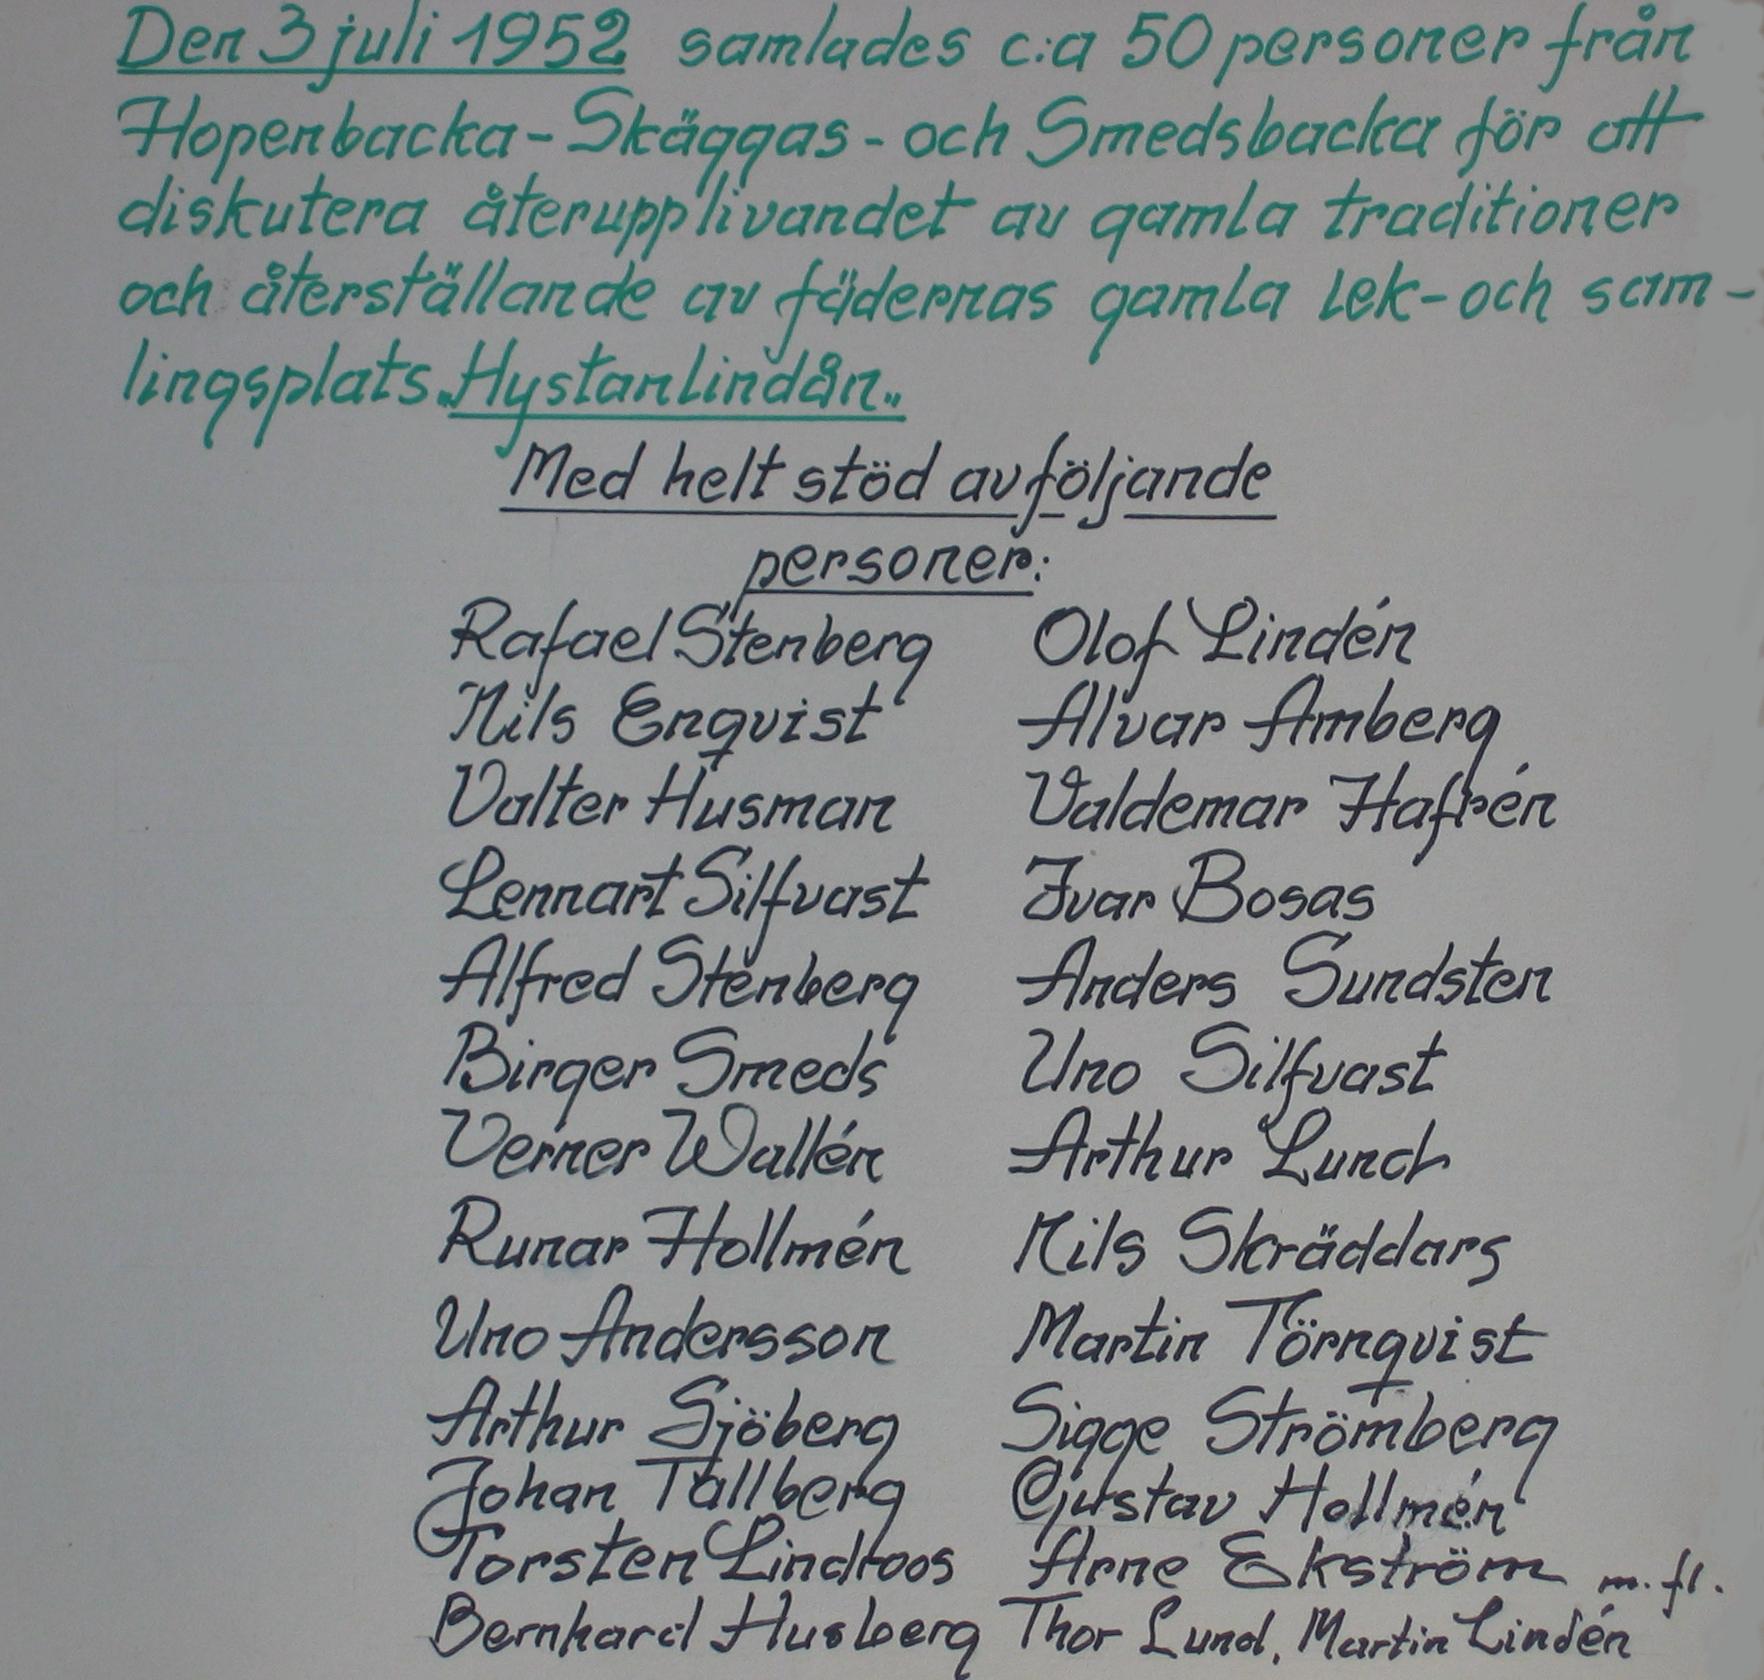 Den 3 juli 1952 samlades c:a 50 personer från
Hopenbacka-Skäggas-och Smedsbacka för att
diskutera återupplivandet av gamla traditioner
och återställande av fädernas gamla lek-och sam-
lingsplats „Hystanlindån„
Med helt stöd av följande
personer:
Rafael Stenberg Olof Lindén
Nils Enqvist Alvar Amberg
Valter Husman Valdemar Hafrén
Lennart Silfvast Ivar Bosas
Alfred Stenberg Anders Sundsten
Birger Smeds Uno Silfvast
Verner Wallén Arthur Lund
Runar Hollmén Nils Skräddars
Uno Andersson Martin Törnqvist
Arthur Sjöberg Sigge Strömberg
Johan Tallberg Gustav Hollmén
Torsten Lindroos Arne Ekström m.fl.
Bernhard Husberg Thor Lund, Martin Lindén